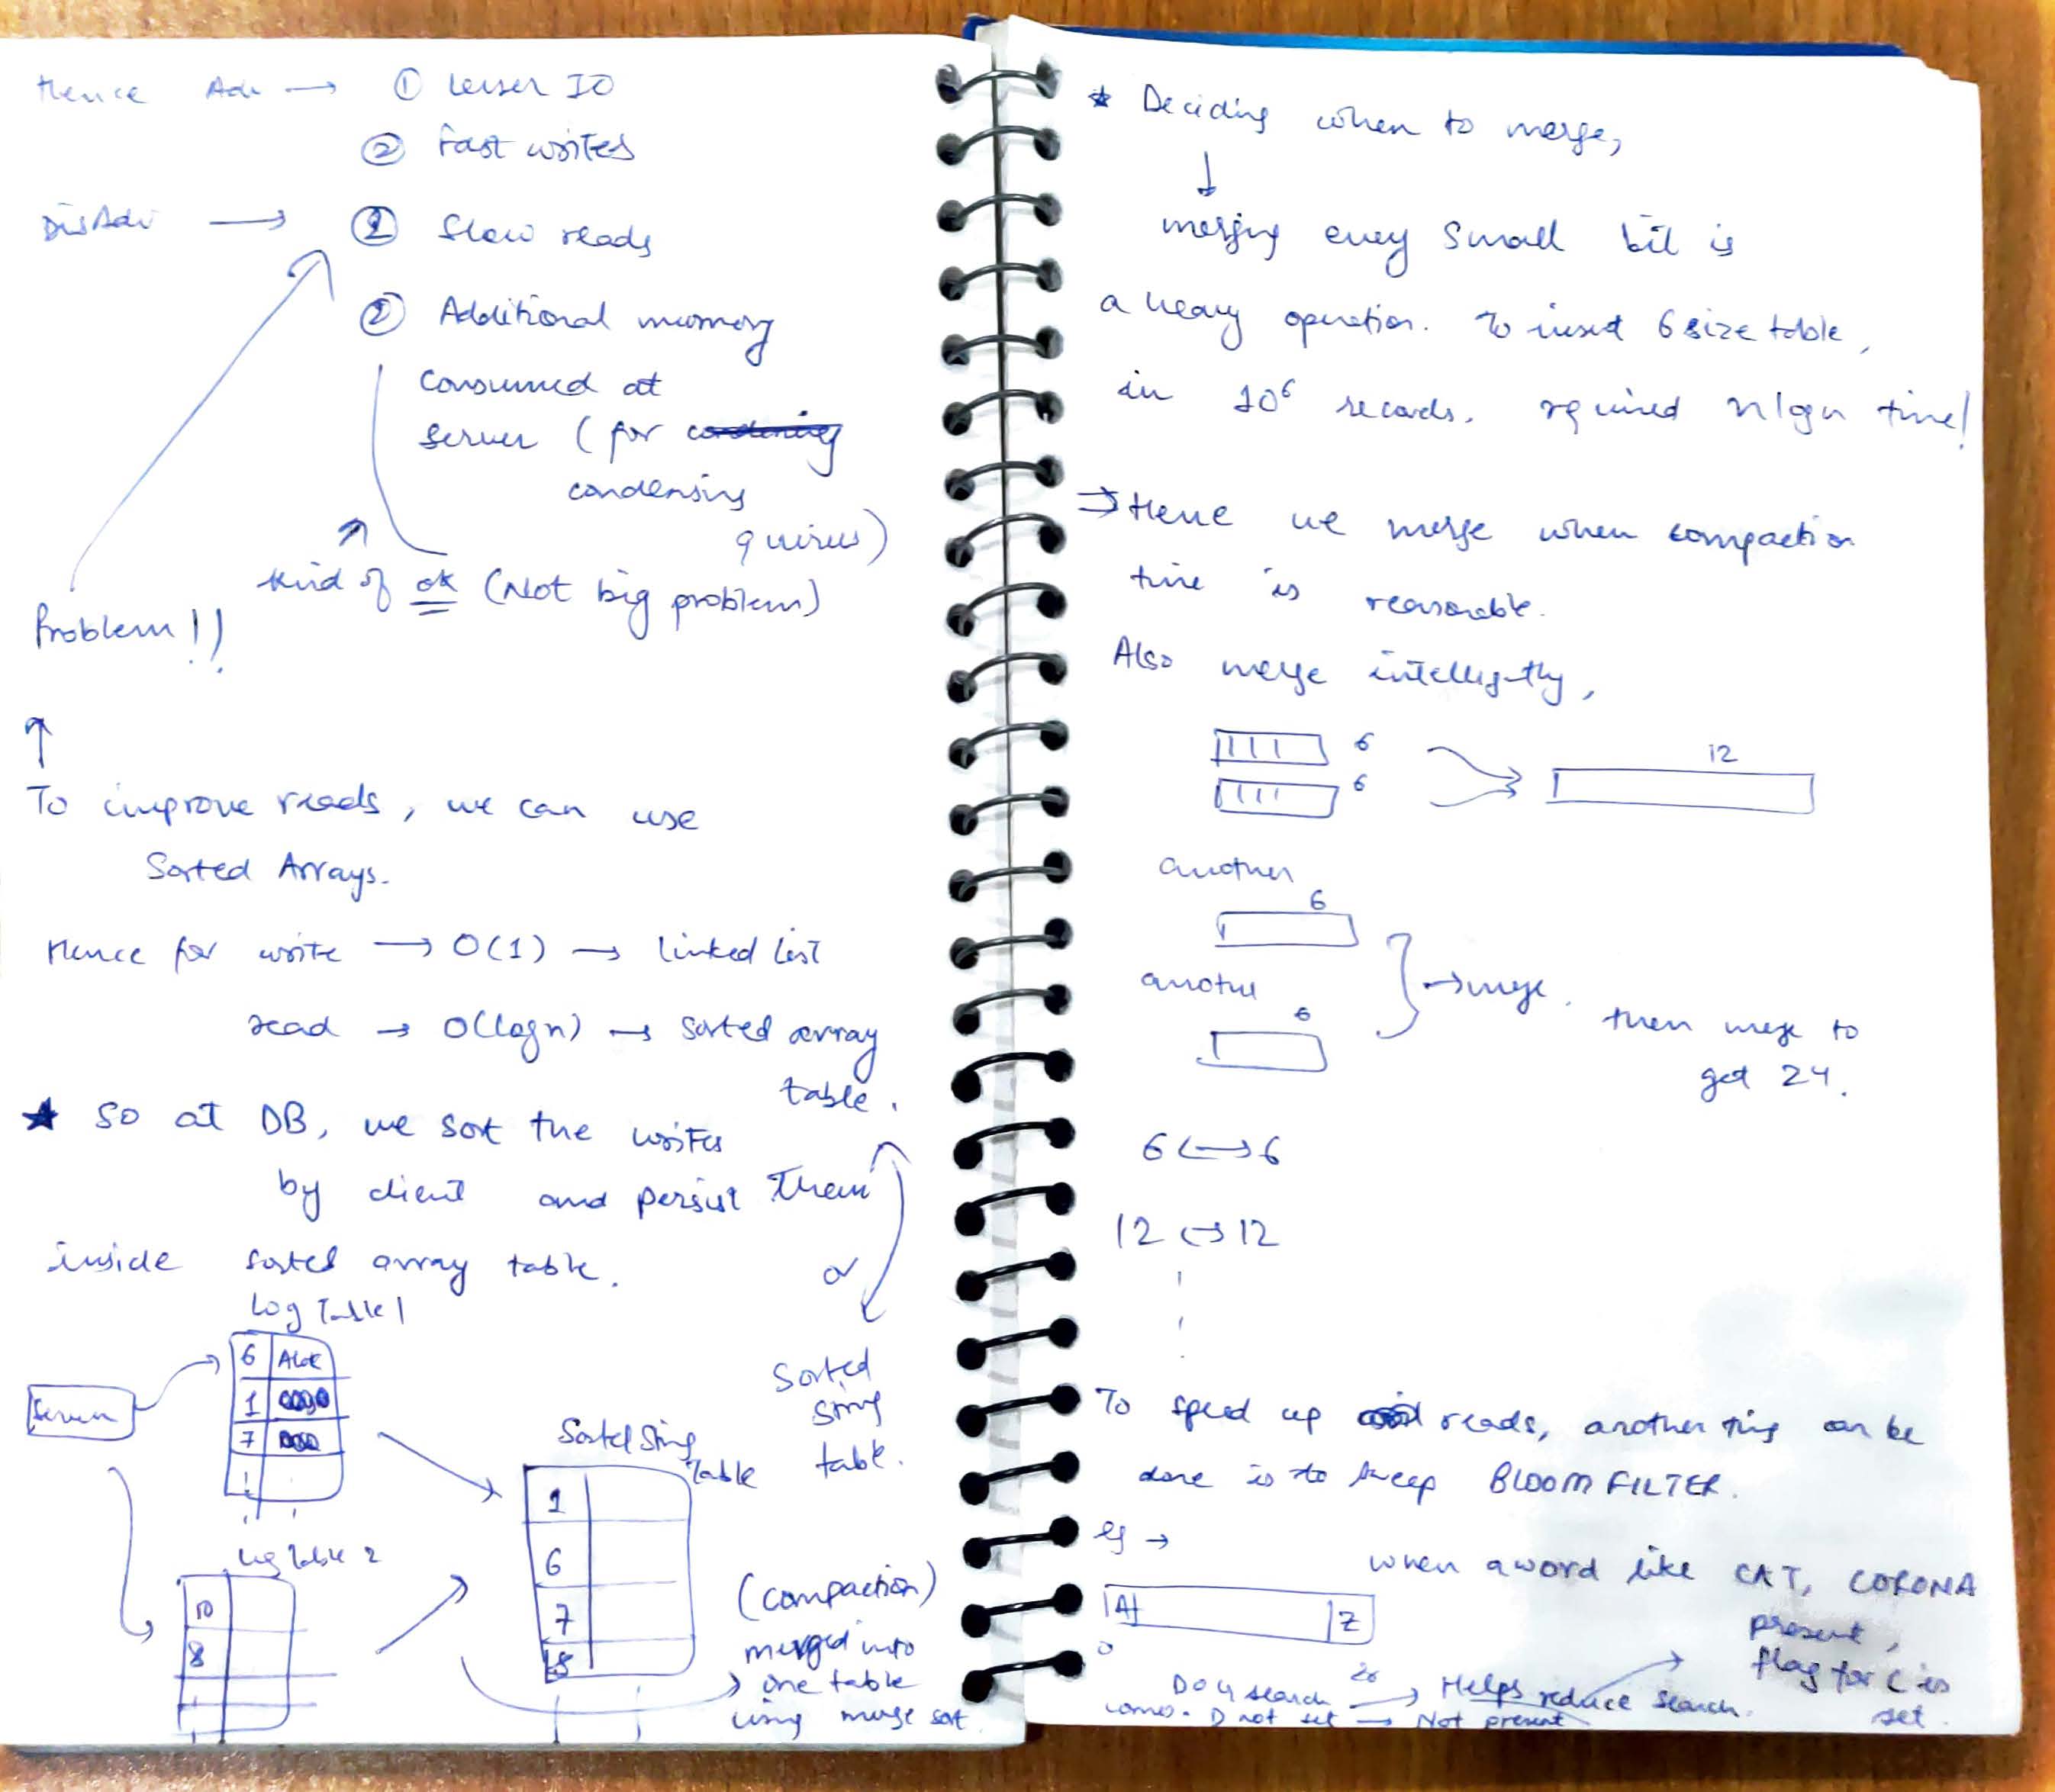 Hence Adv → ① Lesser IO
② Fast writes
DisAdv → ① Slow reads
② Additional memory
consumed at
server (for
condensing
quiries)
kind of ok (Not big problem)
Problem!!
↑
To improve reads, we can use
Sorted Arrays.
Hence for write → O(1) → linked list
read → O(logn) → sorted array
table.
★ So at DB, we sort the writes
by client and persist them
inside sorted array table.
or
Sorted
String
table.
Log Table 1
6 Alok
1
7
Server
Log Table 2
10
8
Sorted String
Table
1
6
7
8
(compaction)
merged into
one table
using merge sort.
★ Deciding when to merge,
↓
merging every small bit is
a heavy operation. To insert 6 size table,
in 10⁶ records. required nlgn time!
⇒ Hence we merge when compaction
time is reasonable.
Also merge intelligently,
6
6
12
another
6
another
6
→ merge. then merge to
get 24.
6 ↔ 6
12 ↔ 12
To speed up reads, another thing can be
done is to keep BLOOM FILTER.
eg →
when a word like CAT, CORONA
present,
flag for C is
set.
A Z
0 26
Dog search → Helps reduce search.
comes. D not set → Not present